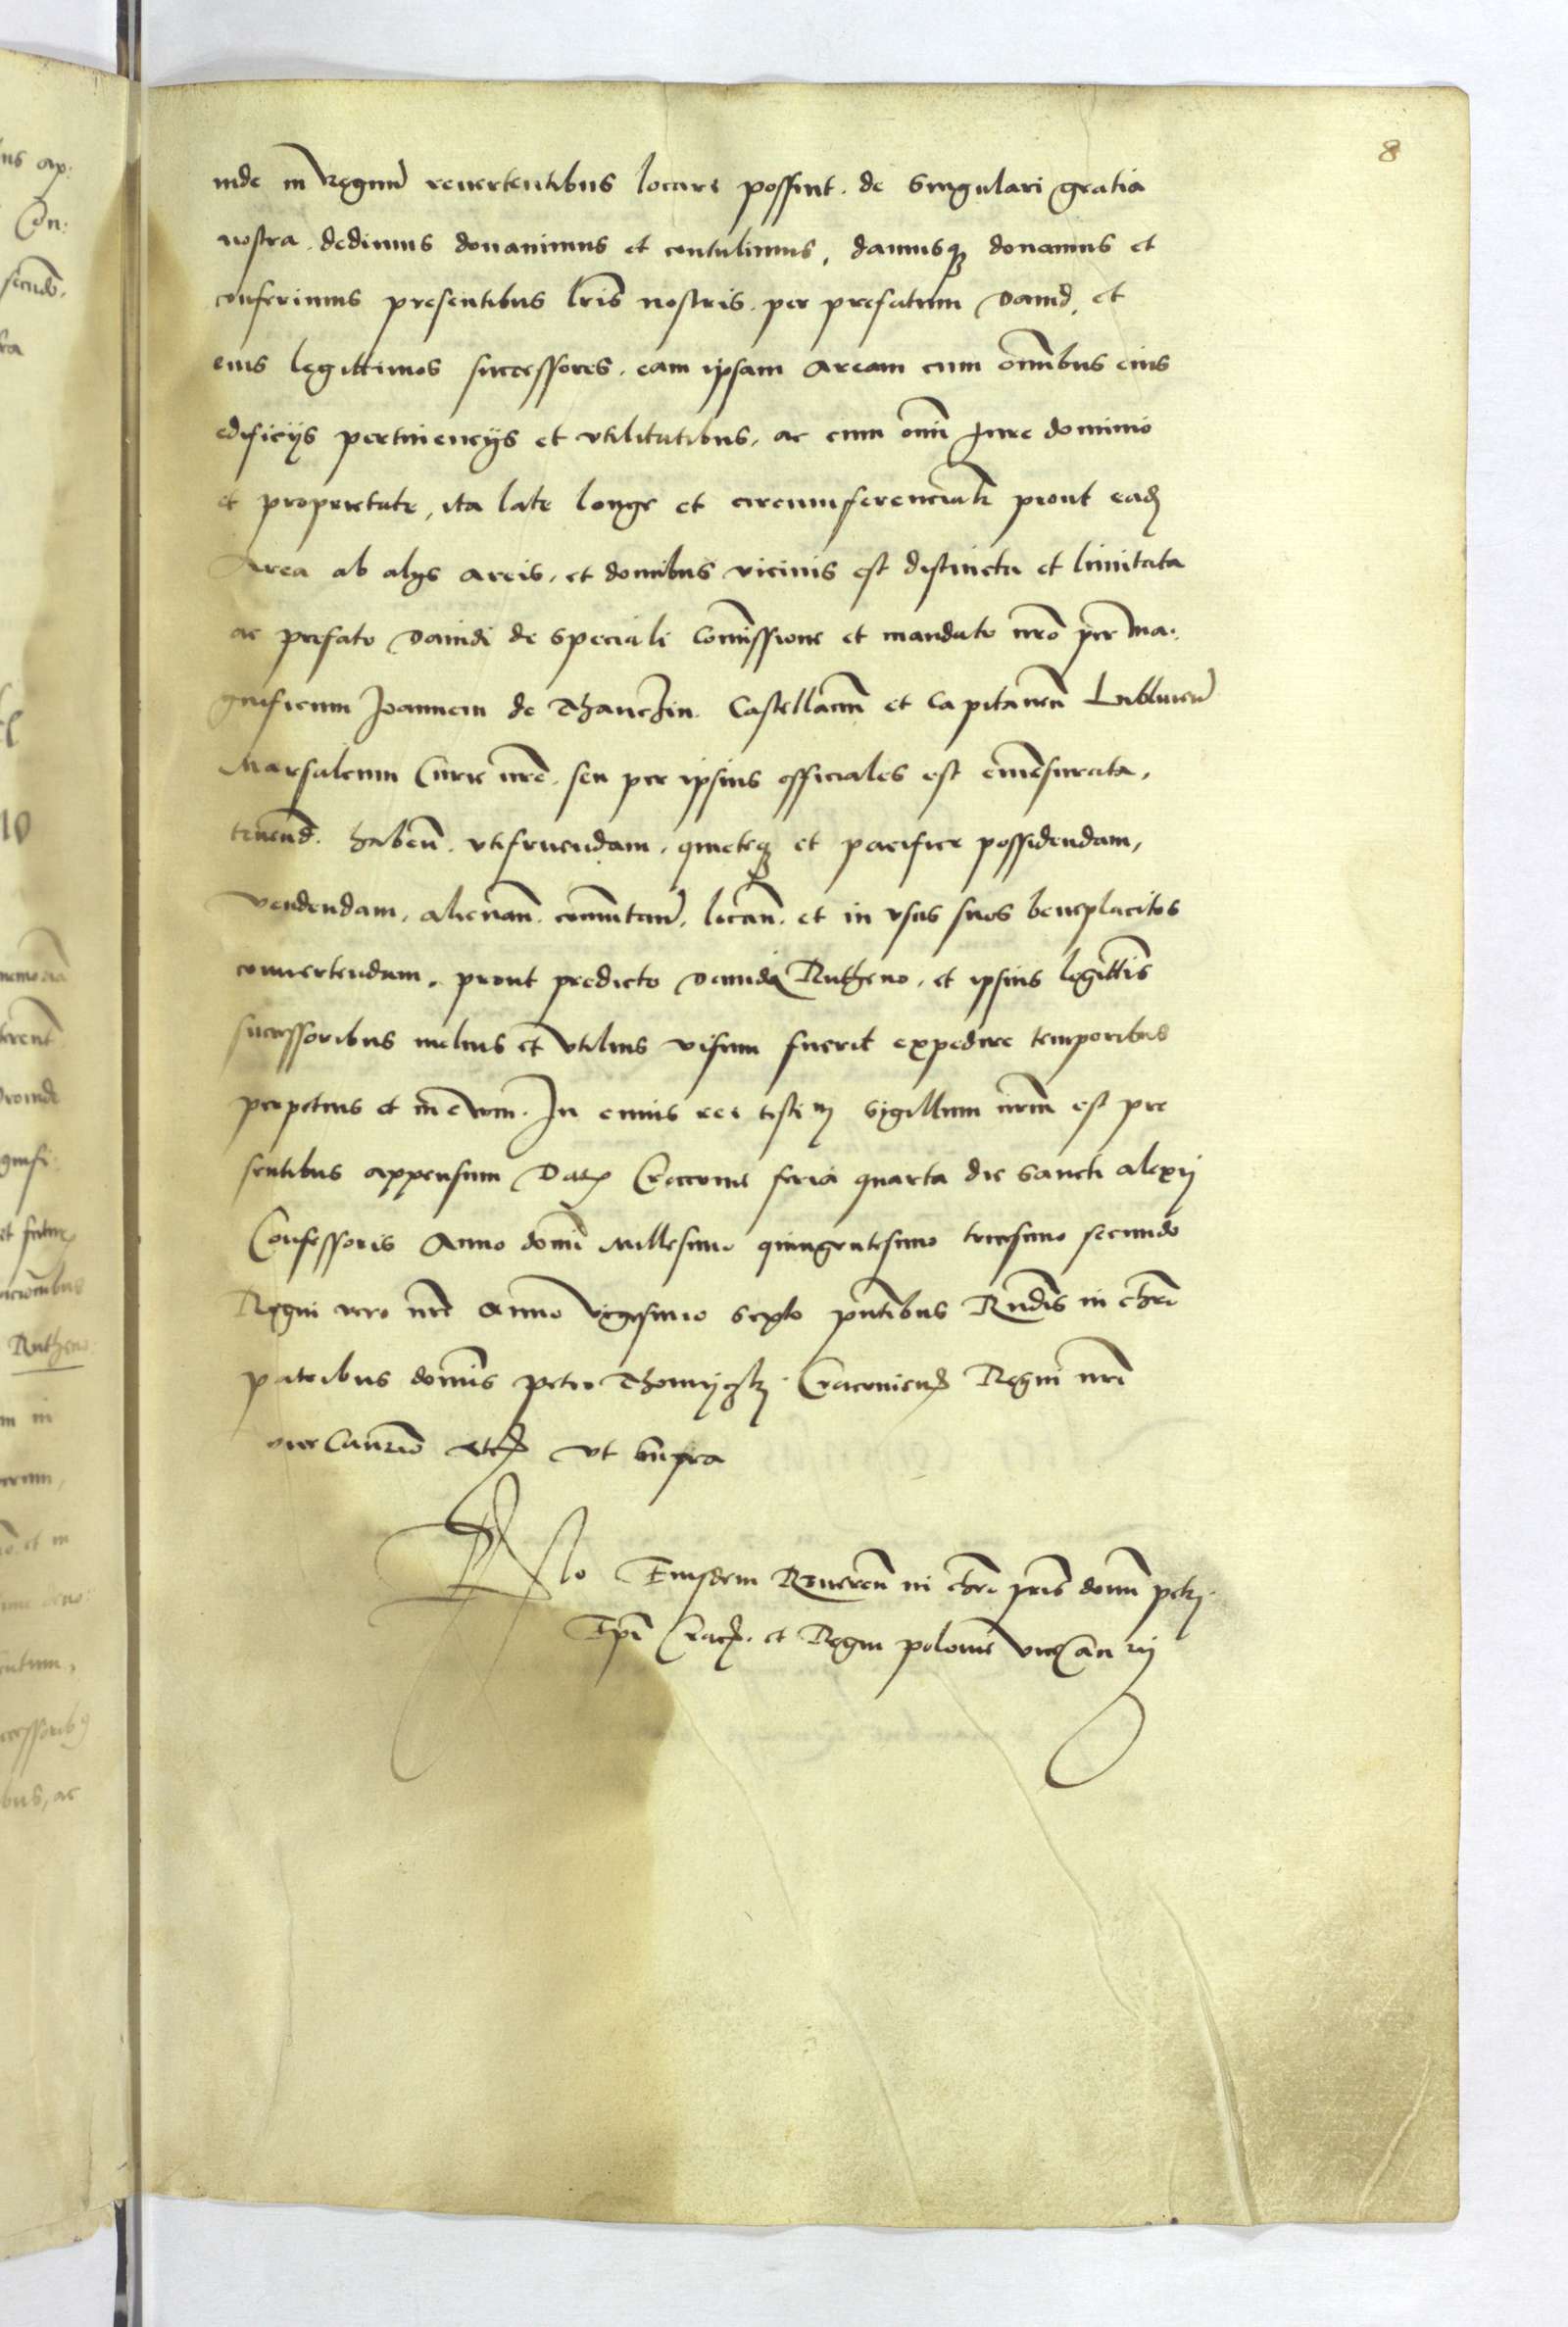 8
inde in Regnu revertentibus locari possint. de singulari gratia
nostra. dedimus donavimus et contulimus, damusq donamus et
conferimus presentibus lris nostris. per prefatum David, et
eius legittimos successores. eam ipsam aream cum omibus eius
edificijs pertinencijs et vtilitatibus, ac cum omi Jure dominio
et proprietate, ita late longe et circumferencialr prout ead
Area ab alijs areis, et domibus vicinis est distincta et limitata
ac prefato Davidi de speciali Comissione et mandato nro per Ma:
gnificum Joannem de Thanczin. Castellanu et Capitaneu Lublinen
Marsalcum Curie nre. seu per ipsius officiales est emensurata,
tenend. haben. vtifruendam. quieteq et pacifice possidendam,
vendendam. alienan. comutan. locan. et in vsus suos beneplacitos
convertendam. prout predicto Davidi Rutheno, et ipsius legittis
successoribus melius et vtilius visum fuerit expedire temporibus
perpetuis et in evum. In cuius rei testim sigillum nrm est pre
sentibus appensum Dat Cracovie feria quarta die sancti alexij
Confessoris Anno domi Millesimo quingentesimo tricesimo secundo
Regni vero nri Anno vigesimo sexto pntibus Rndis in chri
patribus domis petro Thomijczky. Cracovien Regni nri
vice Cancrio etc vt supra
Rlo Eiusdem Reveren in chri pris domi petri.
Epi Crac. et Regni polonie viceCan rij
ns ap:
Con:
secudo.
ra
memoria
erent
gnifi:
et futur
Rutheno
m in
erum,
o. et in
ntum,
ccessorib9
bus, ac